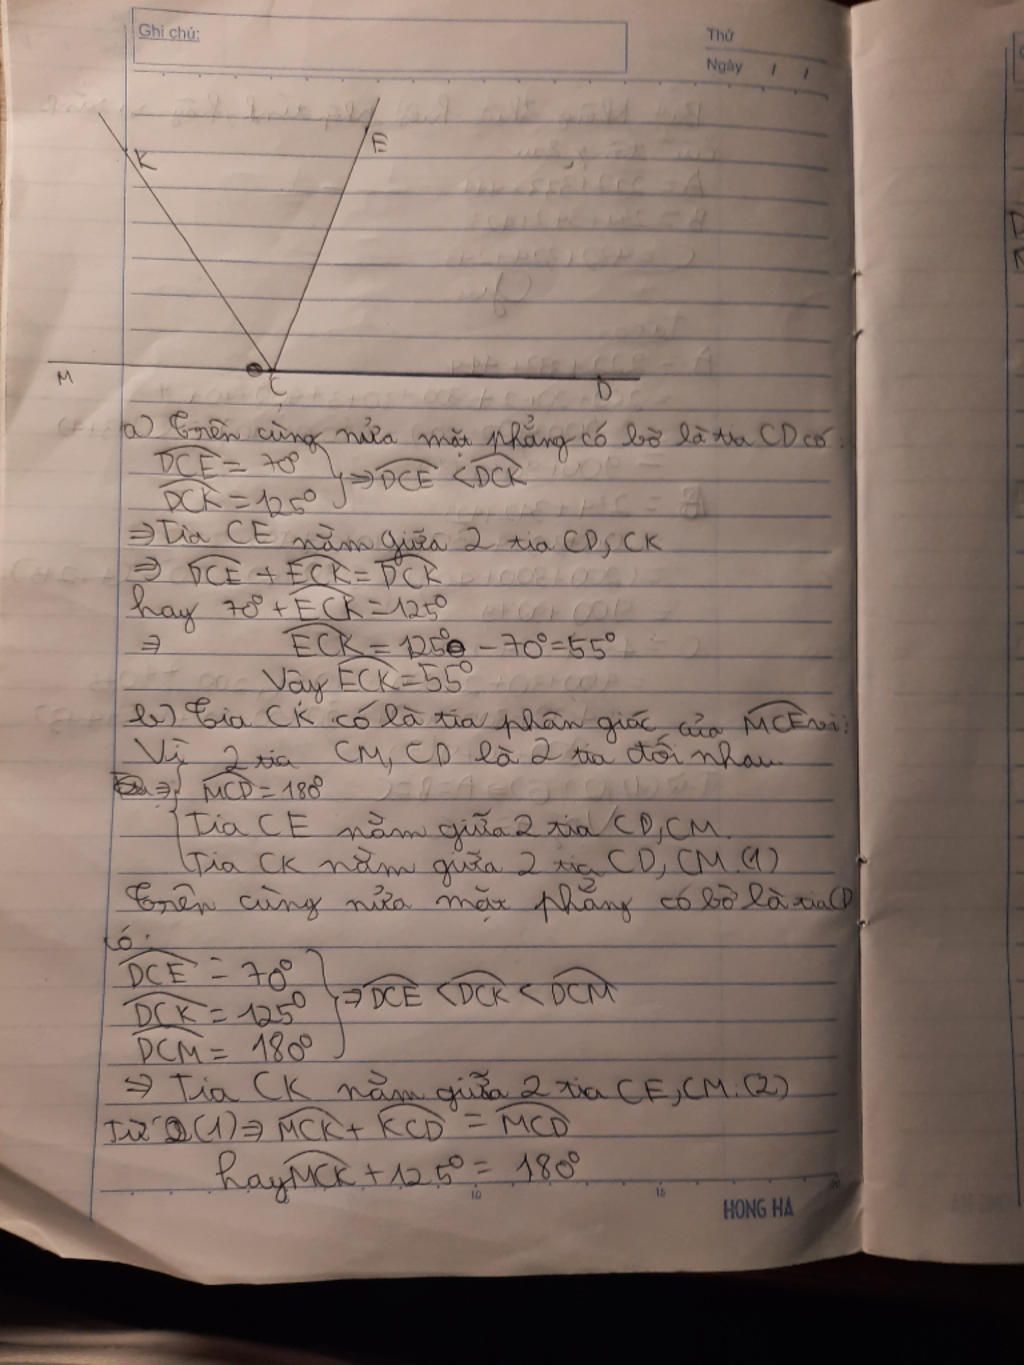 Ghi chú:
Thứ
Ngày / /
K
E
M
C
D
a) Trên cùng nửa mặt phẳng có bờ là tia CD có:
DCE = 70°
DCK = 125°
⇒ DCE < DCK
⇒ Tia CE nằm giữa 2 tia CD, CK
⇒ DCE + ECK = DCK
hay 70° + ECK = 125°
⇒ ECK = 125° - 70° = 55°
Vậy ECK = 55°
b) Tia CK có là tia phân giác của MCE vì:
Vì 2 tia CM, CD là 2 tia đối nhau
⇒ MCD = 180°
Tia CE nằm giữa 2 tia CD, CM.
Tia CK nằm giữa 2 tia CD, CM. (1)
Trên cùng nửa mặt phẳng có bờ là tia CD
có:
DCE = 70°
DCK = 125°
DCM = 180°
⇒ DCE < DCK < DCM
⇒ Tia CK nằm giữa 2 tia CE, CM. (2)
Từ (1) ⇒ MCK + KCD = MCD
hay MCK + 125° = 180°
10 15 20
HONG HA